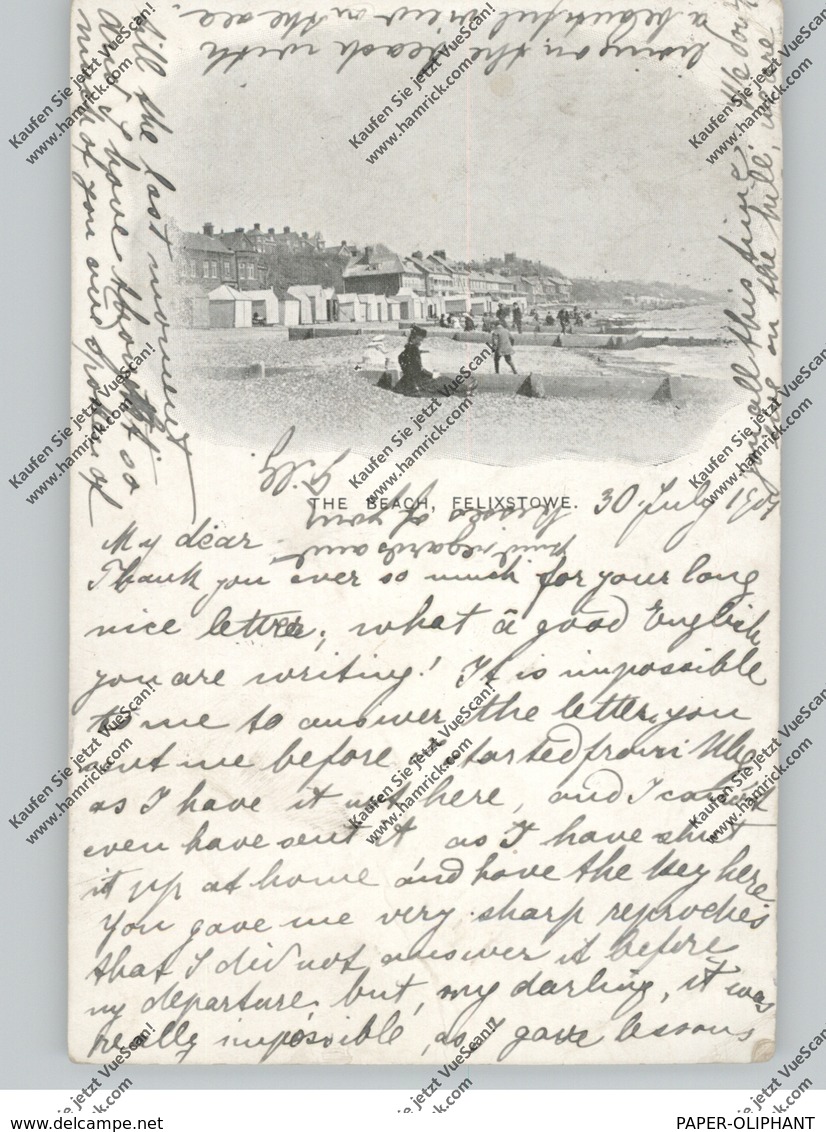 THE BEACH, FELIXSTOWE. 30. July 190
My dear
Thank you ever so much for your long
nice letter; what a good English
you are writing! It is impossible
to me to answer the letter you
sent me before I started from
as I have it not here, and I cannot
even have sent it as I have shut
it up at home and have the key here
You gave me very sharp reproches
that I did not answer it before
my departure but, my darling, it was
really impossible, as I gave lessons
till the last moment
And I have thought so
much of you and spoken of
living on the beach with
a beautiful view on the sea.
We don't
all this time
on the hill, where
regards and
kisses of your
Kaufen Sie jetzt VueScan!
www.hamrick.com!
www.delcampe.net
PAPER-OLIPHANT